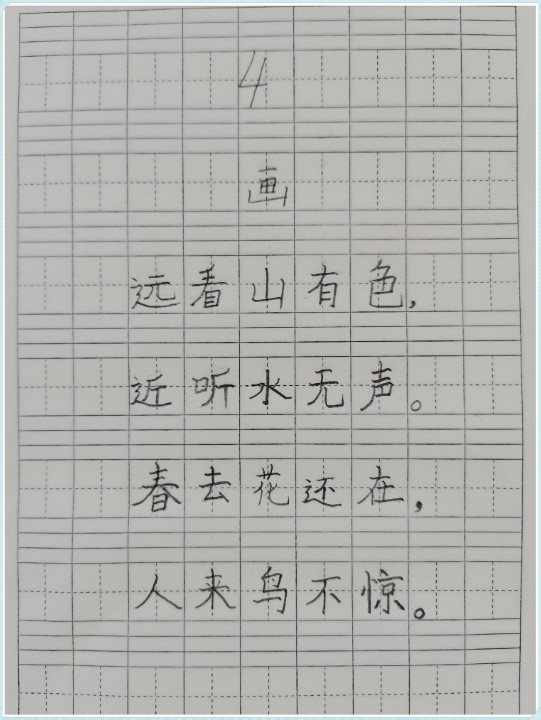 4
画
远看山有色,
近听水无声。
春去花还在,
人来鸟不惊。